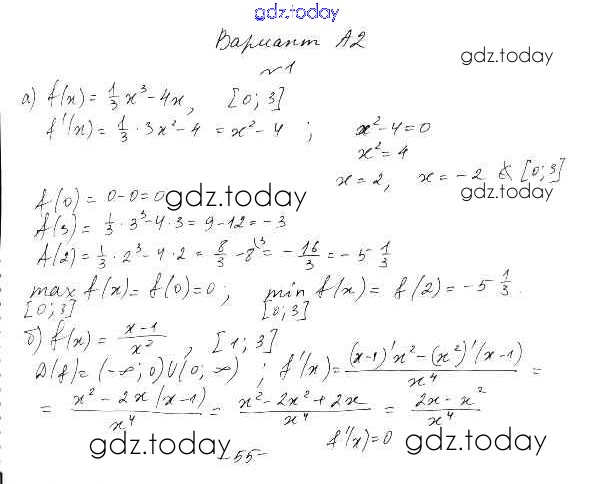 gdz.today
Вариант А2
gdz.today
№1
а) f(x) = 1/3 x³ - 4x, [0; 3]
f'(x) = 1/3 · 3x² - 4 = x² - 4 ; x² - 4 = 0
x² = 4
x = 2, x = -2 ∉ [0; 3]
gdz.today
f(0) = 0 - 0 = 0
gdz.today
f(3) = 1/3 · 3³ - 4 · 3 = 9 - 12 = -3
f(2) = 1/3 · 2³ - 4 · 2 = 8/3 - 8 = -16/3 = -5 1/3
max f(x) = f(0) = 0 ; min f(x) = f(2) = -5 1/3.
[0; 3] [0; 3]
б) f(x) = (x-1)/x², [1; 3]
D(f) = (-∞; 0) ∪ (0; ∞) ; f'(x) = ((x-1)'x² - (x²)'(x-1))/x⁴ =
= (x² - 2x(x-1))/x⁴ = (x² - 2x² + 2x)/x⁴ = (2x - x²)/x⁴
f'(x) = 0
gdz.today
gdz.today
55